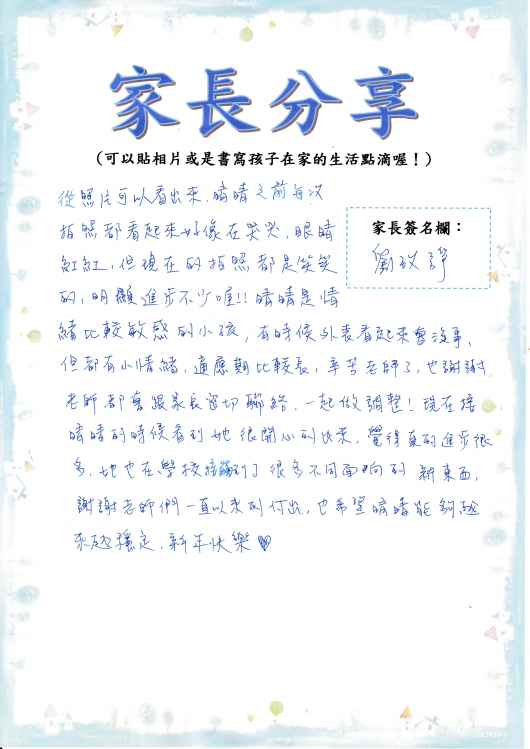 家長分享
(可以貼相片或是書寫孩子在家的生活點滴喔！)
從照片可以看出來，晴晴之前每次
拍照都看起來好像在哭哭，眼睛
紅紅，但現在的拍照都是笑笑
的，明顯進步不少喔!! 晴晴是情
緒比較敏感的小孩，有時候外表看起來會沒事，
但都有小情緒，適應期比較長，辛苦老師了，也謝謝
老師都會跟家長密切聯絡，一起做調整！現在接
晴晴的時候看到她很開心的出來，覺得真的進步很
多，她也在學校接觸到了很多不同面向的新東西，
謝謝老師們一直以來的付出，也希望晴晴能夠越
來越穩定，新年快樂♥
家長簽名欄：
劉